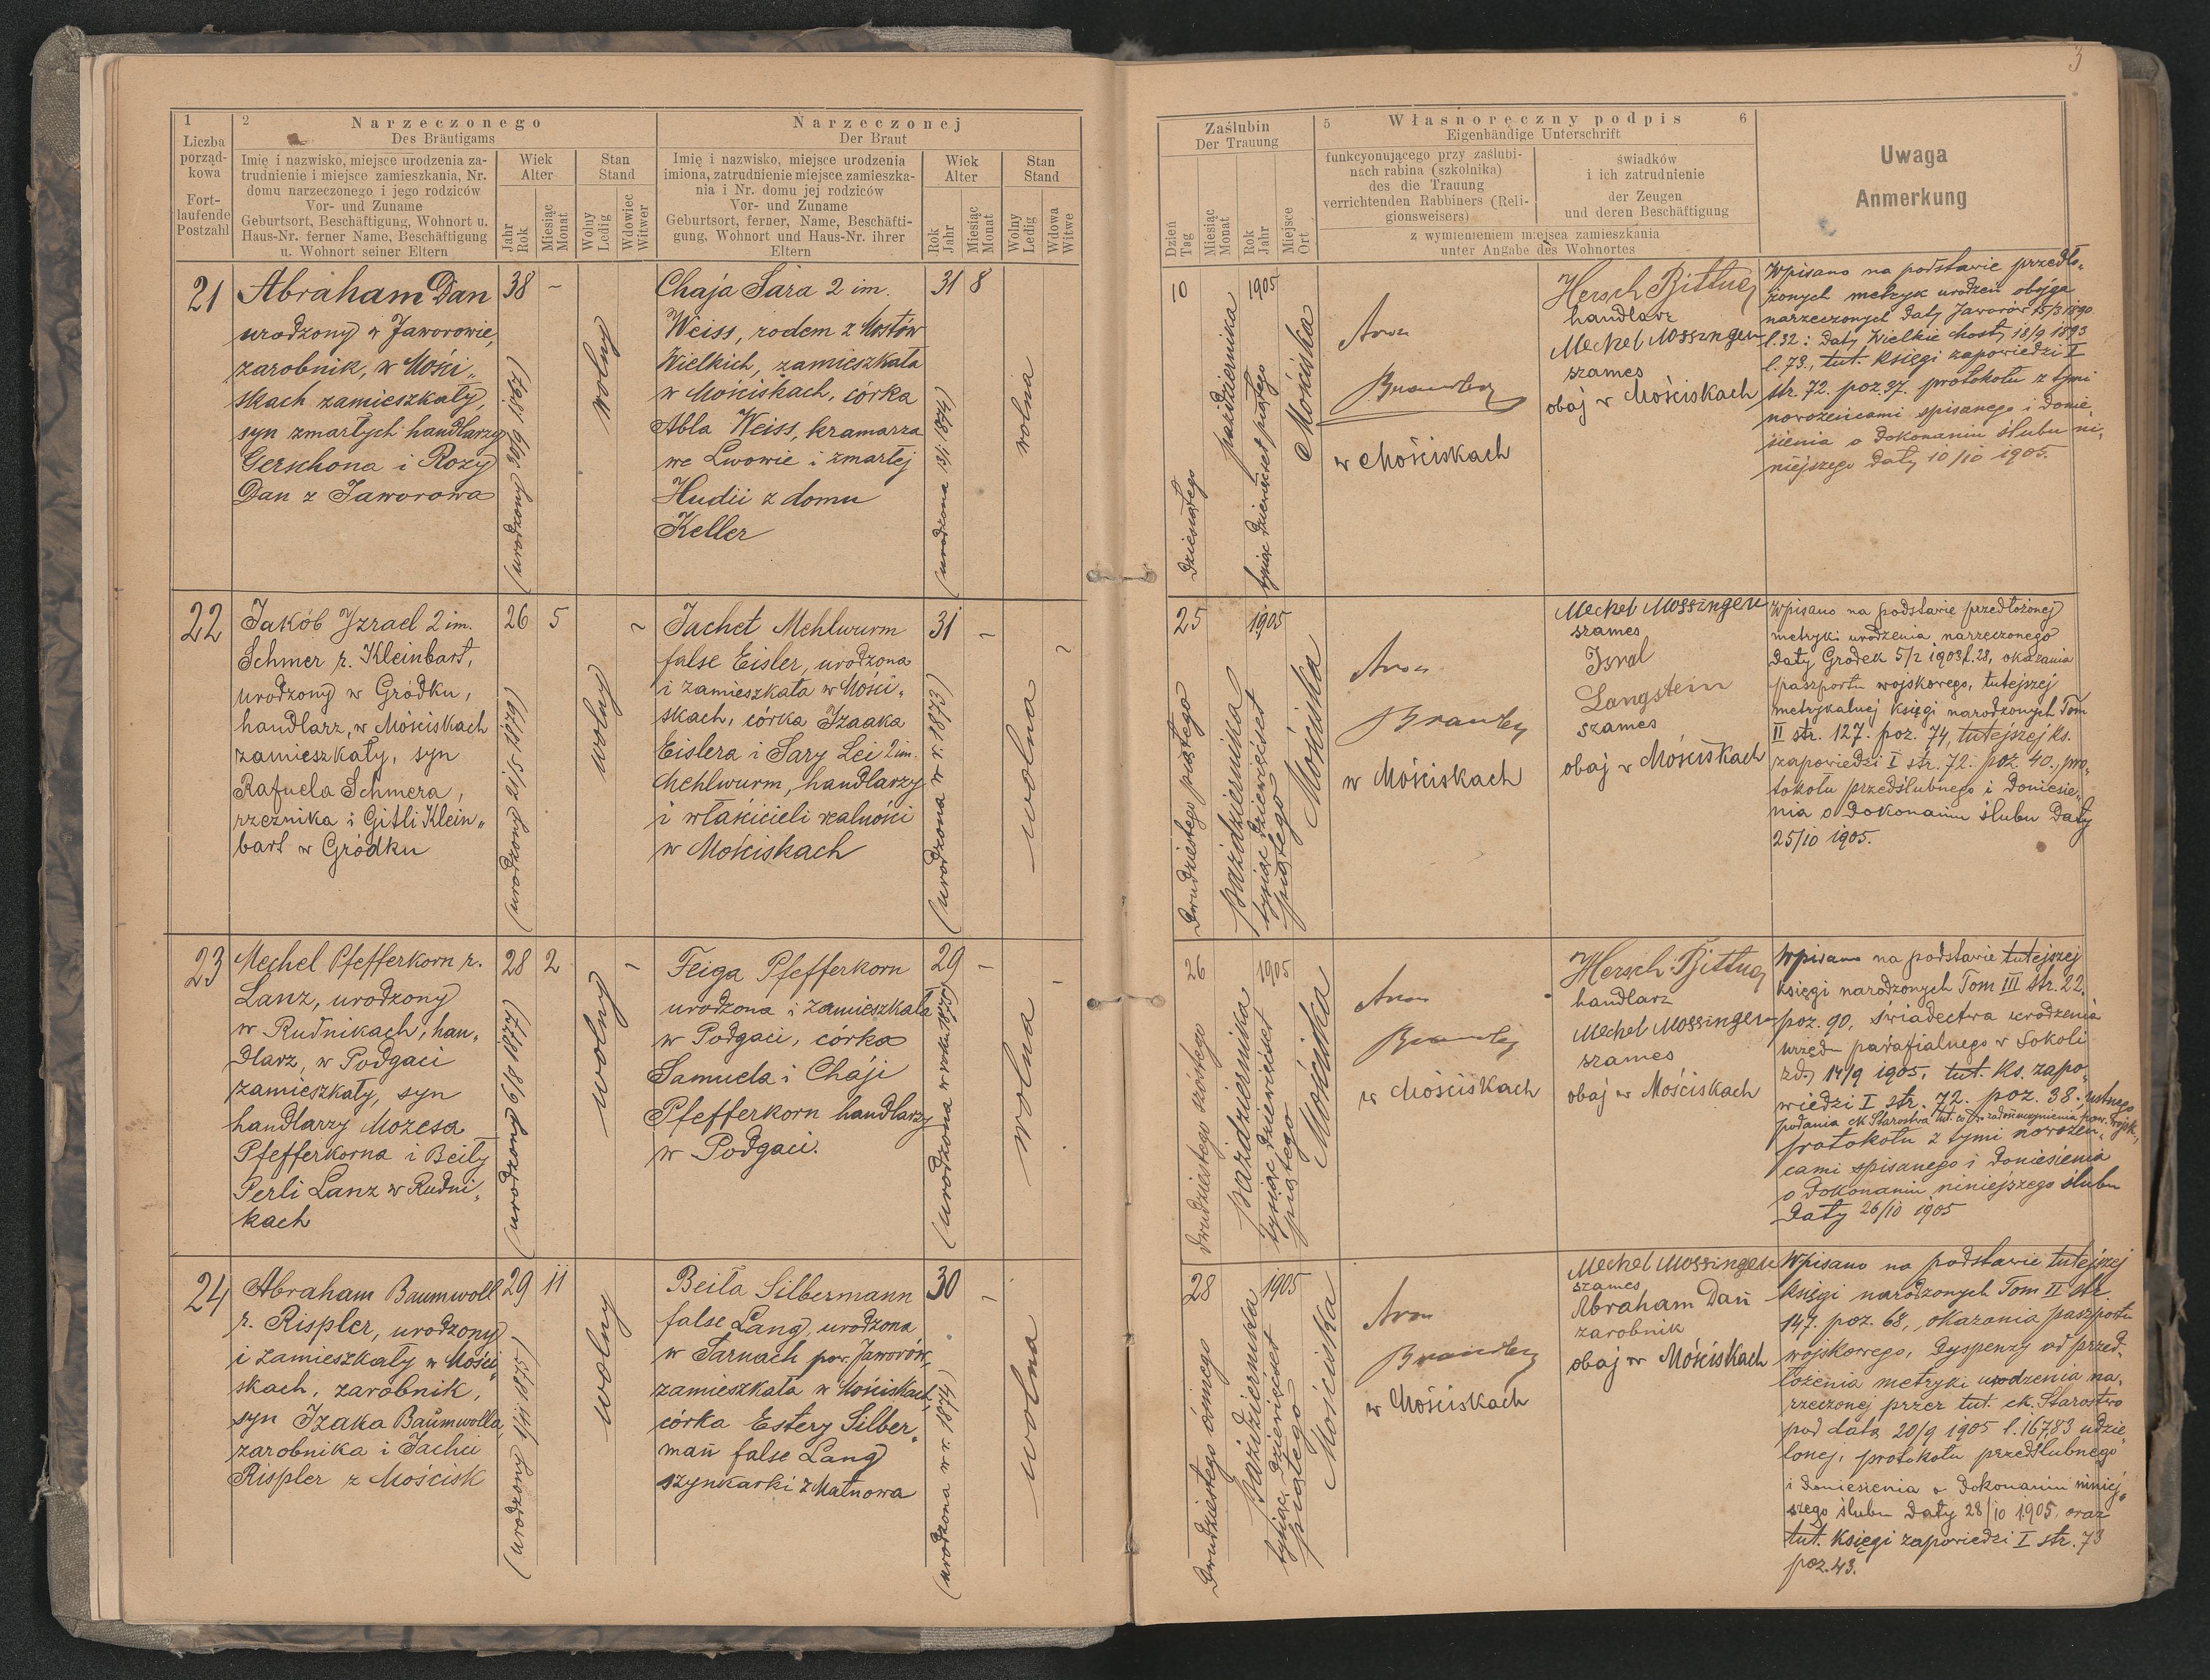 3
1
Liczba
porząd-
kowa
Fort-
laufende
Postzahl
2
Narzeczonego
Des Bräutigams
Imię i nazwisko, miejsce urodzenia za-
trudnienie i miejsce zamieszkania, Nr.
domu narzeczonego i jego rodziców
Vor- und Zuname
Geburtsort, Beschäftigung, Wohnort u.
Haus-Nr. ferner Name, Beschäftigung
u. Wohnort seiner Eltern
Wiek
Alter
Jahr
Rok
Miesiąc
Monat
Stan
Stand
Wolny
Ledig
Wdowiec
Witwer
Narzeczonej
Der Braut
Imię i nazwisko, miejsce urodzenia
imiona, zatrudnienie miejsce zamieszka-
nia i Nr. domu jej rodziców
Vor- und Zuname
Geburtsort, ferner, Name, Beschäfti-
gung, Wohnort und Haus-Nr. ihrer
Eltern
Wiek
Alter
Rok
Jahr
Miesiąc
Monat
Stan
Stand
Wolny
Ledig
Wdowa
Witwe
Zaślubin
Der Trauung
Dzień
Tag
Miesiąc
Monat
Rok
Jahr
Miejsce
Ort
5
Własnoręczny podpis
6
Eigenhändige Unterschrift
funkcyonującego przy zaślubi-
nach rabina (szkolnika)
des die Trauung
verrichtenden Rabbiners (Reli-
gionsweisers)
świadków
i ich zatrudnienie
der Zeugen
und deren Beschäftigung
z wymienieniem miejsca zamieszkania
unter Angabe des Wohnortes
Uwaga
Anmerkung
21
Abraham Dan
urodzony w Jaworowie,
zarobnik, w Mości„
skach zamieszkały,
syn zmarłych handlarzy
Gerschona i Rozy
Dan z Jaworowa
38 -
(urodzony 30/9 1867)
wolny
Chaja Sara 2 im.
Weiss, rodem z Mostów
Wielkich, zamieszkała
w Mościskach, córka
Abla Weiss, kramarza
we Lwowie i zmarłej
Hudii z domu
Keller
31 8
(urodzona 13/1 1874)
wolna
10
dziesiątego
października
1905
tysiąc dziewięćset piątego
Mościska
Aron
Brandes
w Mościskach
Hersch Bittner
handlarz
Mechel Mossinger
szames
obaj w Mościskach
Wpisano na podstawie przedło„
żonych metryk urodzeń obojga
narzeczonych daty Jaworów 15/3 1890
l. 32 i daty Wielkie Mosty 18/9 1893
l. 73., tut. księgi zapowiedzi I
str. 72. poz. 37. protokołu z tymi
nowożeńcami spisanego i donie„
sienia o dokonaniu ślubu ni„
niejszego daty 10/10 1905.
22
Jakób Izrael 2 im.
Schmer r. Kleinbart,
urodzony w Gródku,
handlarz, w Mościskach
zamieszkały, syn
Rafaela Schmera,
rzeźnika i Gitli Klein„
bart w Gródku
26 5
(urodzony 21/5 1879)
wolny
Jachet Mehlwurm
false Eisler, urodzona
i zamieszkała w Mości„
skach, córka Izaaka
Eislera i Sary Lei 2 im.
Mehlwurm, handlarzy
i właścicieli realności
w Mościskach
31 -
(urodzona w r. 1873)
wolna
25
Dwudziestego piątego
października
1905
tysiąc dziewięćset
piątego
Mościska
Aron
Brandes
w Mościskach
Mechel Mossinger
szames
Isral
Langstein
szames
obaj w Mościskach
Wpisano na podstawie przedłożonej
metryki urodzenia narzeczonego
daty Gródek 5/2 1903 l. 28, okazania
paszportu wojskowego, tutejszej
metrykalnej księgi narodzonych Tom
II str. 127. poz. 74, tutejszej ks.
zapowiedzi I str. 72. poz. 40., pro„
tokołu przedślubnego i doniesie„
nia o dokonaniu ślubu daty
25/10 1905.
23
Mechel Pfefferkorn r.
Lanz, urodzony
w Rudnikach, han„
dlarz, w Podgaci
zamieszkały, syn
handlarzy Mozesa
Pfefferkorna i Beily
Perli Lanz w Rudni„
kach
28 2
(urodzony 6/8 1877)
wolny
Feiga Pfefferkorn
urodzona i zamieszkała
w Podgaci, córka
Samuela i Chaji
Pfefferkorn handlarzy
w Podgaci.
29 -
wolna
26
dwudziestego szóstego
października
1905
tysiąc dziewięćset
piątego
Mościska
Aron
Brandes
w Mościskach
Hersch Bittner
handlarz
Mechel Mossinger
szames
obaj w Mościskach
Wpisano na podstawie tutejszej
księgi narodzonych Tom III str. 22.
poz. 90, świadectwa urodzenia
urzędu parafialnego w Sokoli
zd. 14/9 1905, tut. ks. zapo„
wiedzi I str. 72. poz. 38. ustnego
podania ck Starostwa tut.
protokołu z tymi nowożeń„
cami spisanego i doniesienia
o dokonaniu niniejszego ślubu
daty 26/10 1905
24
Abraham Baumwoll
r. Rispler, urodzony
i zamieszkały w Mości„
skach, zarobnik,
syn Izaka Baumwolla,
zarobnika i Jachci
Rispler z Mościsk
29 11
(urodzony 1/11 1875)
wolny
Beila Silbermann
false Lang, urodzona
w Sarnach pow. Jaworów,
zamieszkała w Mościskach,
córka Estery Silber„
mañ false Lang
szynkarki z Małnowa
30 -
(urodzona w r. 1874)
wolna
28
Dwudziestego ósmego
października
1905
tysiąc dziewięćset
piątego
Mościska
Aron
Brandes
w Mościskach
Mechel Mossinger
szames
Abraham Dañ
zarobnik
obaj w Mościskach
Wpisano na podstawie tutejszej
księgi narodzonych Tom II str.
147. poz. 68, okazania paszportu
wojskowego, dyspenzy od przed„
łożenia metryki urodzenia na„
rzeczonej przez tut. ck. Starostwo
pod datą 20/9 1905 l. 16783 udzie„
lonej, protokołu przedślubnego
i doniesienia o dokonaniu niniej„
szego ślubu daty 28/10 1905. oraz
tut. księgi zapowiedzi I str. 73
poz. 43.